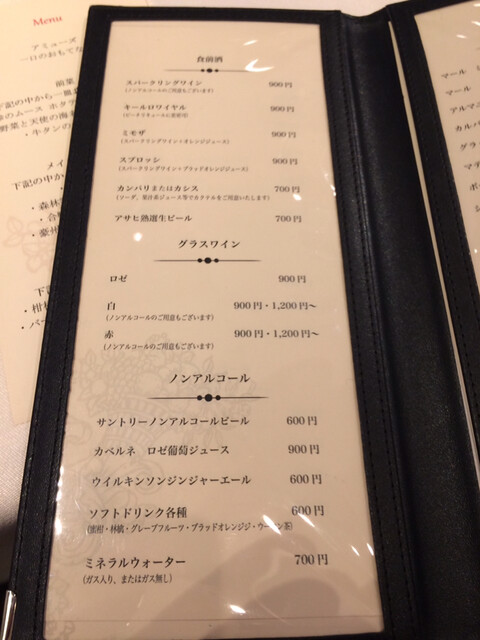 Menu
アミューズ
一口のおもてな
前菜
下記の中から一風
のムース ホタテ
野菜と天使の海老
・牛タンの
メイ
下記の中か
・森林
・合
・豪州
下記
・柑橘
・バー
食前酒
スパークリングワイン 900円
(ノンアルコールのご用意もございます)
キールロワイヤル 900円
ミモザ 900円
(スパークリングワイン・オレンジジュース)
スプロッシ 900円
(スパークリングワイン・ブラッドオレンジジュース)
カンパリまたはカシス 700円
(ソーダ、果汁系ジュース等でカクテルをご用意いたします)
アサヒ熟選生ビール 700円
グラスワイン
ロゼ 900円
白 900円・1,200円〜
(ノンアルコールのご用意もございます)
赤 900円・1,200円〜
(ノンアルコールのご用意もございます)
ノンアルコール
サントリーノンアルコールビール 600円
カベルネ ロゼ葡萄ジュース 900円
ウイルキンソンジンジャーエール 600円
ソフトドリンク各種 600円
(蜜柑・林檎・グレープフルーツ・ブラッドオレンジ・ウーロン茶)
ミネラルウォーター 700円
(ガス入り、またはガス無し)
マール
マール
アルマニ
カルバ
グラッ
マデ
ポー